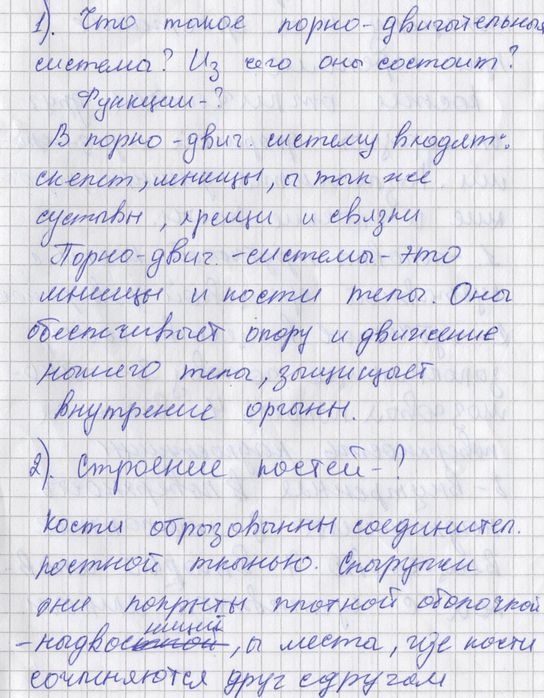 1). Что такое порно-двигательная
система? Из чего она состоит?
Функции-?
В порно-двиг. систему входят:
скелет, мышцы, а так же
суставы, хрящи и связки
Порно-двиг.-системы-это
мышцы и кости тела. Она
обеспечивает опору и движение
нашего тела, защищает
внутрение органы.
2). Строение костей-?
Кости образованны соединител.
костной тканью. Снаружи
они покрыты плотной оболочкой
-надкостницей, а места, где кости
сочленяются друг с другом